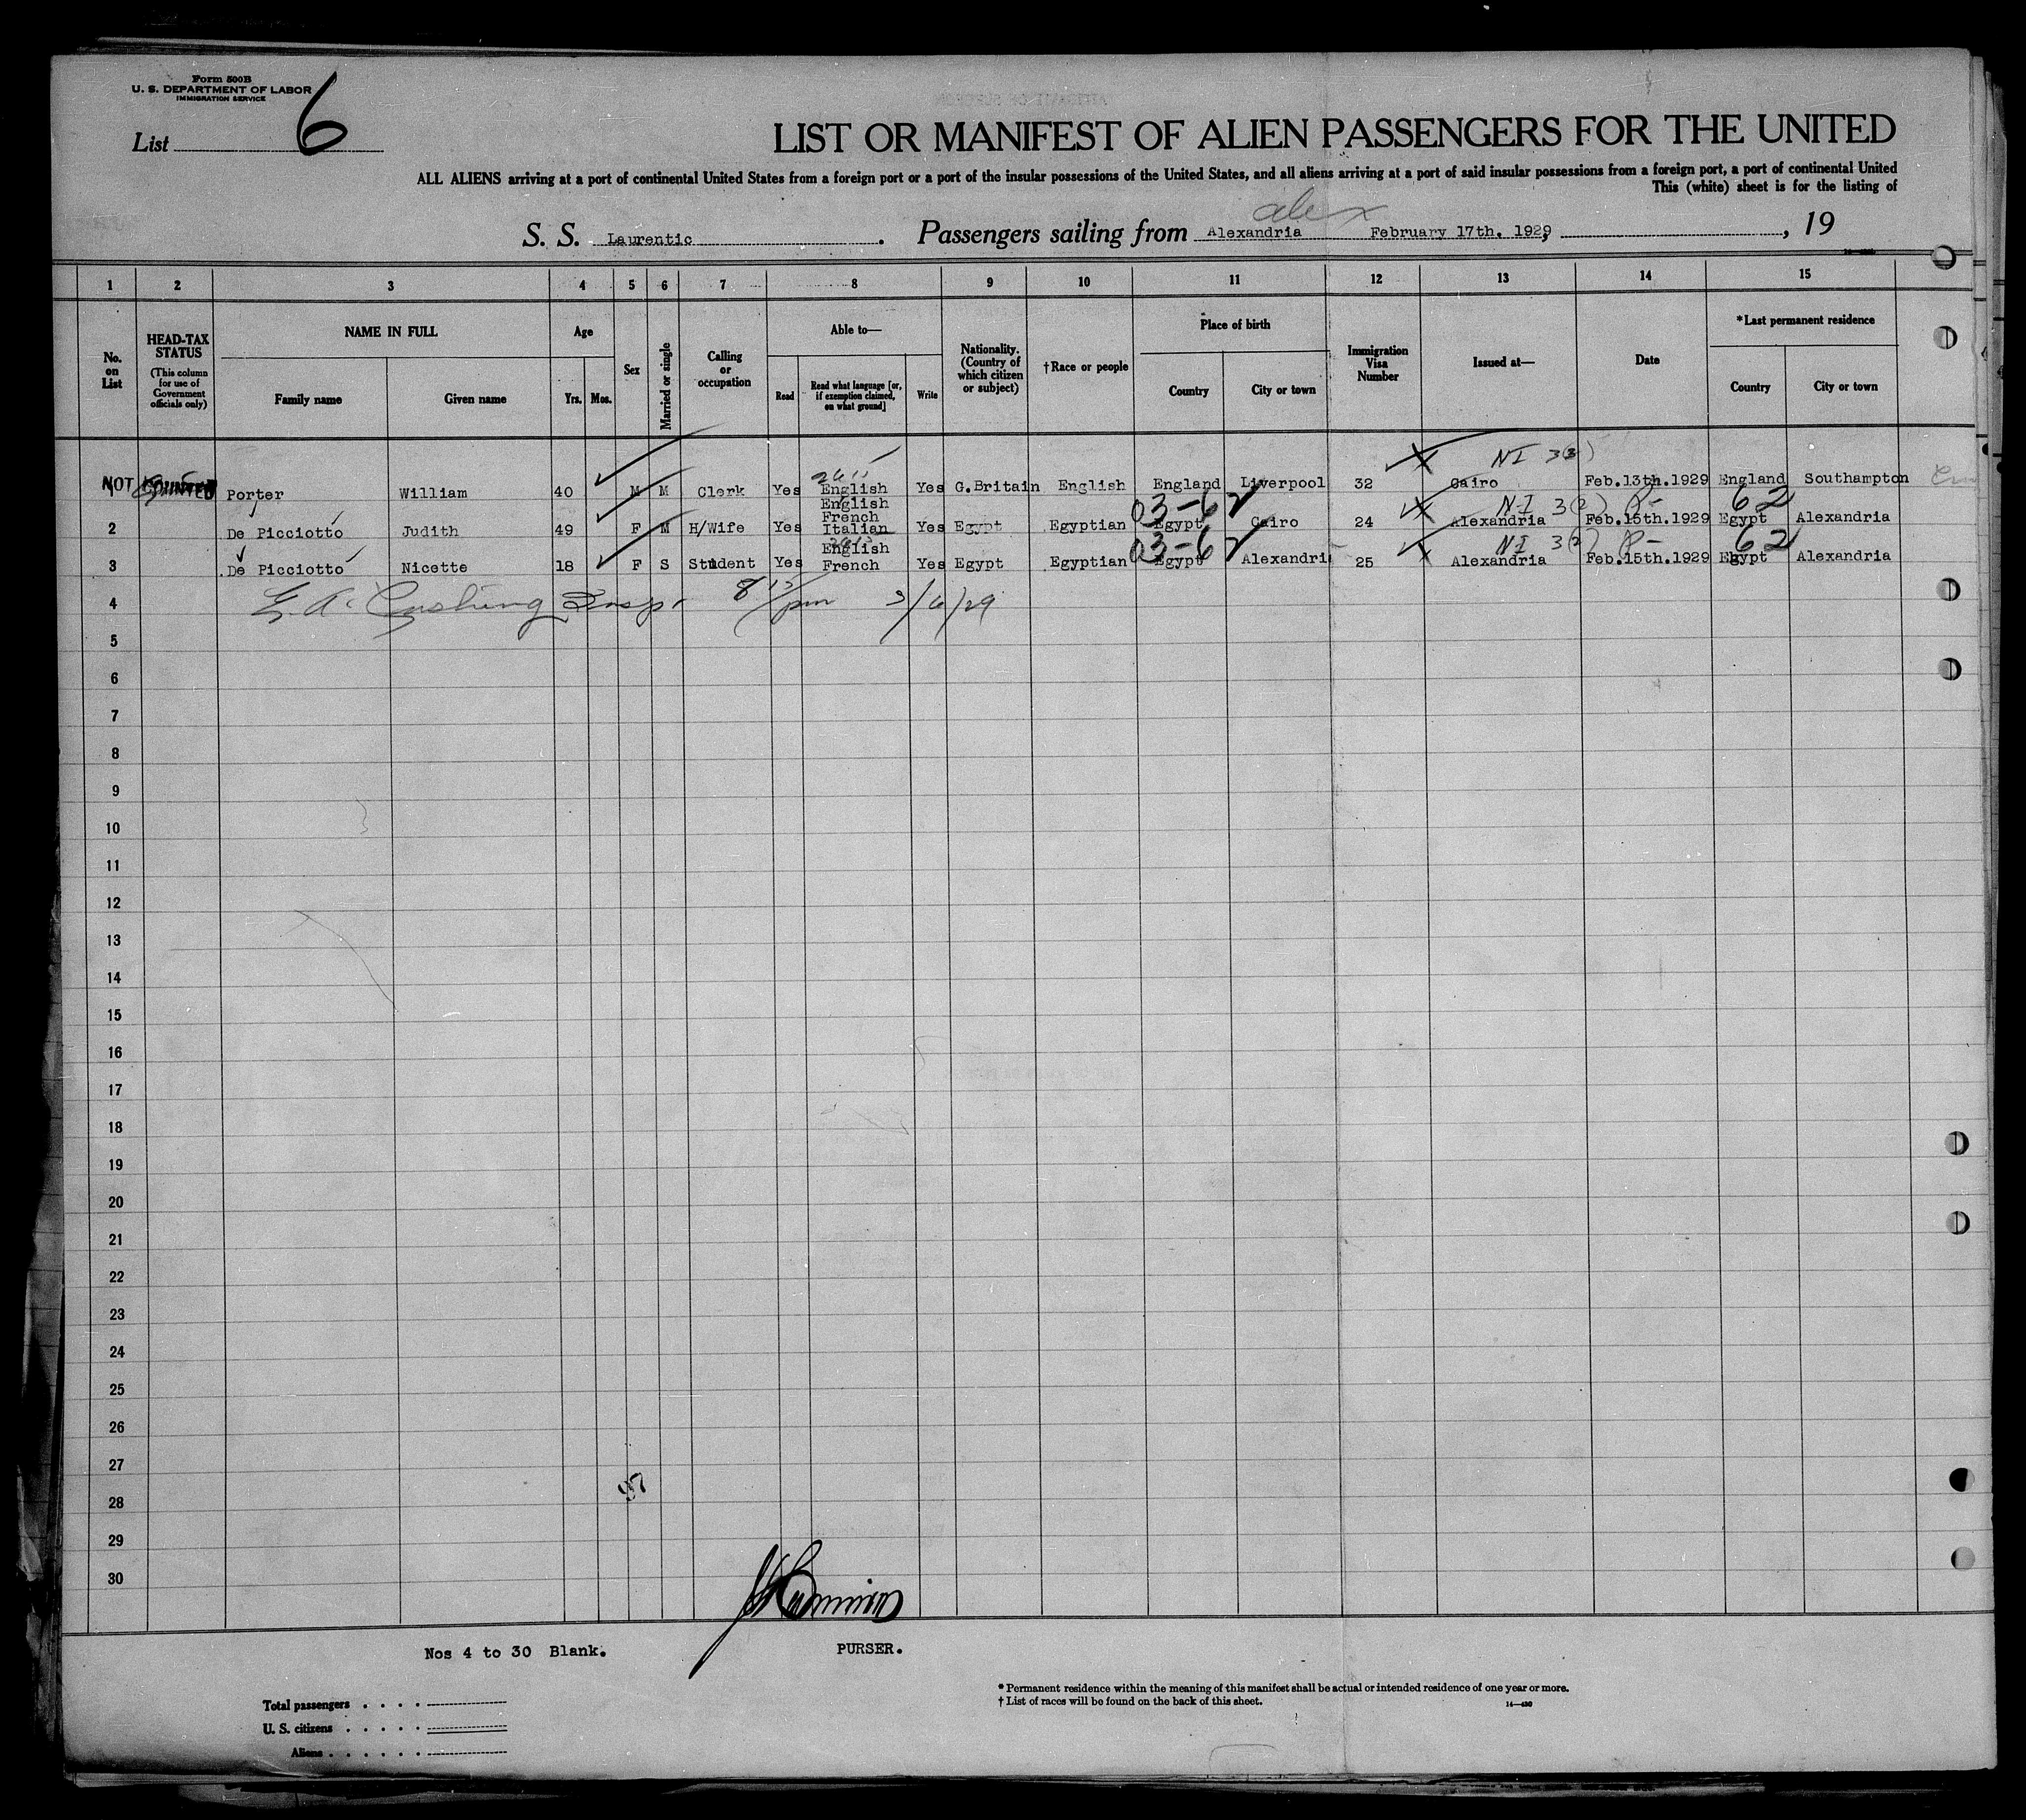 Form 500B
U. S. DEPARTMENT OF LABOR
IMMIGRATION SERVICE
List 6
LIST OR MANIFEST OF ALIEN PASSENGERS FOR THE UNITED
ALL ALIENS arriving at a port of continental United States from a foreign port or a port of the insular possessions of the United States, and all aliens arriving at a port of said insular possessions from a foreign port, a port of continental United
This (white) sheet is for the listing of
alex
S. S. Laurentic. Passengers sailing from Alexandria February 17th. 1929, 19
1 2 3 4 5 6 7 8 9 10 11 12 13 14 15
No. on List
HEAD-TAX STATUS
(This column for use of Government officials only)
NAME IN FULL
Family name
Given name
Age
Yrs.
Mos.
Sex
Married or single
Calling or occupation
Able to—
Read
Read what language [or, if exemption claimed, on what ground]
Write
Nationality. (Country of which citizen or subject)
†Race or people
Place of birth
Country
City or town
Immigration Visa Number
Issued at—
Date
*Last permanent residence
Country
City or town
NI 3(3)
NOT COUNTED
1 Porter William 40 M M Clerk Yes English Yes G.Britain English England Liverpool 32 Cairo Feb.13th.1929 England Southampton
03-6 NI 3(2) P- 62
English
French
2 De Picciotto Judith 49 F M H/Wife Yes Italian Yes Egypt Egyptian Egypt Cairo 24 Alexandria Feb.15th.1929 Egypt Alexandria
03-6 NI 3(2) P- 62
English
3 De Picciotto Nicette 18 F S Student Yes French Yes Egypt Egyptian Egypt Alexandri 25 Alexandria Feb.15th.1929 Egypt Alexandria
4 E. A. Cushing Insp. 8 15/pm 3/6/29
5
6
7
8
9
10
11
12
13
14
15
16
17
18
19
20
21
22
23
24
25
26
27
28
29
30
Nos 4 to 30 Blank.
PURSER.
* Permanent residence within the meaning of this manifest shall be actual or intended residence of one year or more.
† List of races will be found on the back of this sheet.
14—430
Total passengers
U. S. citizens
Aliens